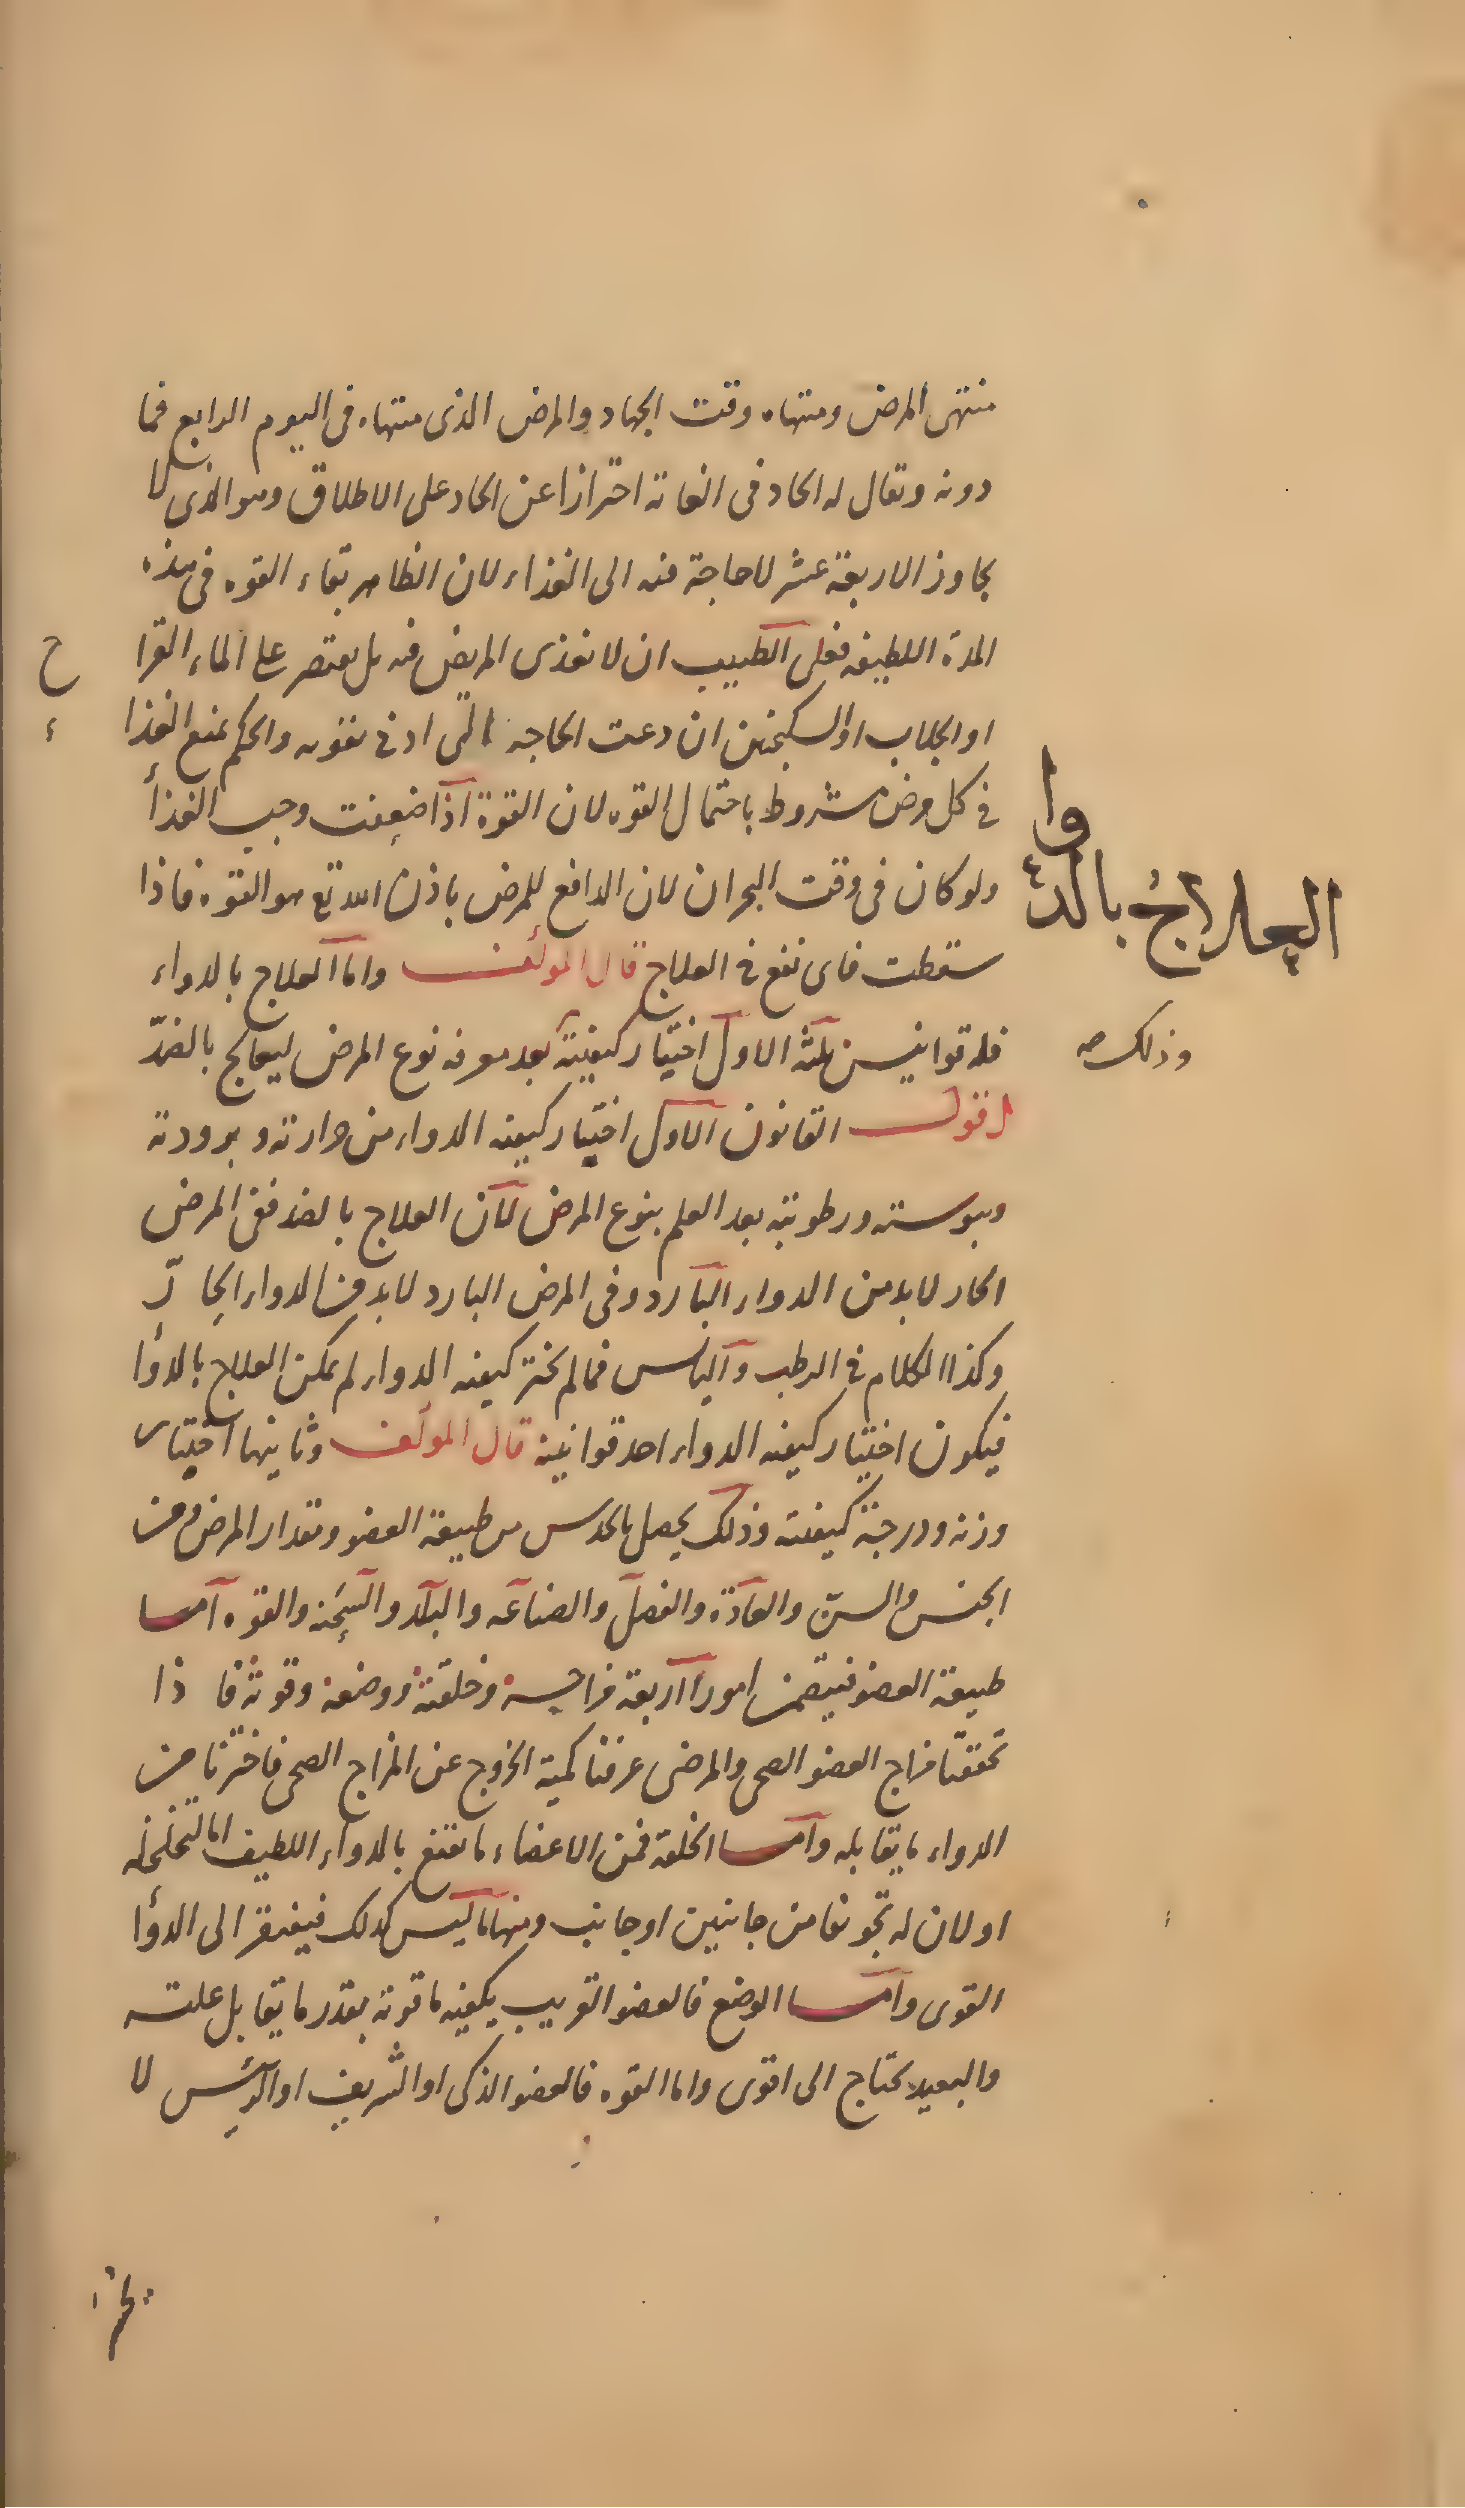 منتهى المرض ومنتهاه وقت الجهاد والمرض الذى منتهاه فى اليوم الرابع فما
دونه ويقال له الحاد فى الغاية احترازا عن الحاد على الاطلاق وهو الذى لا
يجاوز الاربعة عشر لا حاجة فيه الى الغذاء لان الظاهر بقاء القوه فى هذه
المدة اللطيفه فعلى الطبيب ان لا يغذى المريض فيه بل يقتصر على الماء القرا
ح
او الجلاب او السكنجبين ان دعت الحاجه الى ادنى تقويه والحكم بمنع الغذا
ء
فى كل مرض مشروط باحتمال القوه لان القوة اذا ضعفت وجب الغذأ
ولو كان فى وقت البحران لان الدافع للمرض باذن الله تع هو القوه فاذا
العلاج بالدوا
ء
سقطت فاى نفع فى العلاج قال المؤلف واما العلاج بالدواء
فله قوانين ثلثه الاول اختيار كيفيته بعد معرفه نوع المرض ليعالج بالضدّ
وذلك صه
اقول القانون الاول اختيار كيفيه الدواء من حرارته وبرودته
ويبوسته ورطوبته بعد العلم بنوع المرض لان العلاج بالضد ففى المرض
الحار لابد من الدواء البارد وفى المرض البارد لابد من الدواء الحارّ
وكذا الكلام فى الرطب واليابس فما لم يختر كيفيه الدواء لم يمكن العلاج بالدوأ
فيكون اختيار كيفيه الدواء احد قوانينه قال المولف وثانيها اختيار
وزنه ودرجة كيفيته وذلك يحصل بالحدس من طبيعة العضو ومقدار المرض ومن
الجنس والسنّ والعادة والفصل والصناعه والبلد والسحنه والقوه اما
طبيعة العضو فيتضمن امورا اربعة مزاجه وخلقته ووضعه وقوته فاذا
تحققنا مزاج العضو الصحى والمرضى عرفنا كمية الخروج عن المزاج الصحى فاخترنا من
الدواء ما يقابله واما الخلقة فمن الاعضاء ما يقنع بالدواء اللطيف اما لتخلخله
او لان له تجويفا من جانبين او جانب ومنها ما ليس كذلك فيفتقر الى الدوأ
القوى واما الوضع فالعضو القريب يكفيه ما قوته بقدر ما يقابل علته
والبعيد يحتاج الى اقوى واما القوه فالعضو الذكى او الشريف او الرئيس لا